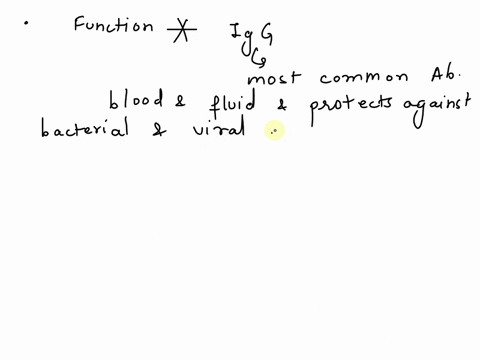 • Function IgG
most common Ab.
blood & fluid & protects against
bacterial & viral